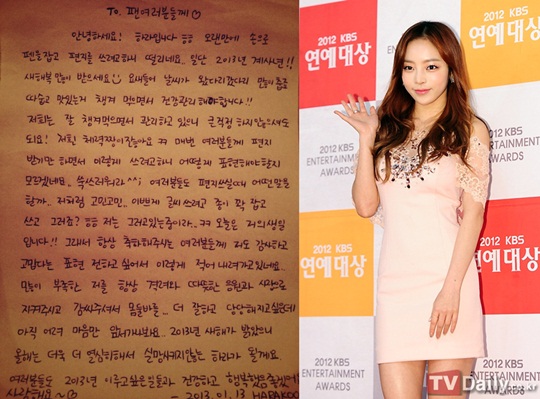 To. 팬여러분들께♡
안녕하세요! 하라입니다 ㅎㅎ 오랜만에 손으로
펜을잡고 편지를 쓰려고하니 떨리네요.. 일단 2013년 계사년!!
새해복 많이 받으세요 요새들어 날씨가 왔다리갔다리 많이들 춥죠
따숩고 맛있는거 챙겨 먹으면서 건강관리해야합니다!!
저희는 잘 챙겨먹으면서 관리하고 있으니 큰걱정 하지않으셔도
되요! 저희 체력짱이잖아요 ㅋㅋ 매번 여러분들께 편지
받기만 하면서 이렇게 쓰려고하니 어떻게 표현해야할지
모르겠네요.. 쑥스러워라^^; 여러분들도 편지쓰실때 어떤말을
할까.. 저처럼 고민고민.. 이쁘게 글씨쓰려고 종이 꽉 잡고
쓰고 그러죠? ㅎㅎ 저는 그러고있는중이라..ㅋㅋ 오늘은 저의생일
입니다!! 그래서 항상 축하해주시는 여러분들께 저도 감사하고
고맙다는 표현 전하고 싶어서 이렇게 적어 내려가고있네요..
많이 부족한 저를 항상 격려와 따뜻한 응원과 사랑으로
지켜주시고 감싸주셔서 몸둘바를.. 더 잘하고 당당해지고싶은데
아직 여려 마음만 앞서가나봐요.. 2013년 새해가 밝았으니
올해는 더욱 더 열심히해서 실망시켜드리지않는 하라가 될게요..
여러분들도 2013년 이루고싶은일들과 건강하고 행복하길 바랄게요
사랑해요~♡ - 2013. 01. 13 HARAKOO
2012 KBS
연예대상
2012 KBS
ENTERTAINMENT
AWARDS
2012 KBS
연예대상
2012 KBS
ENTERTAINMENT
AWARDS
2012 KBS
연예대상
ENTERTAINMENT
AWARDS
TVDaily